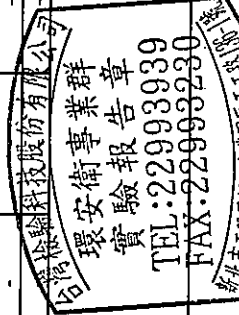 台灣檢驗科技股份有限公司
環安衛事業群
實驗報告章
TEL:22993939
FAX:22993230